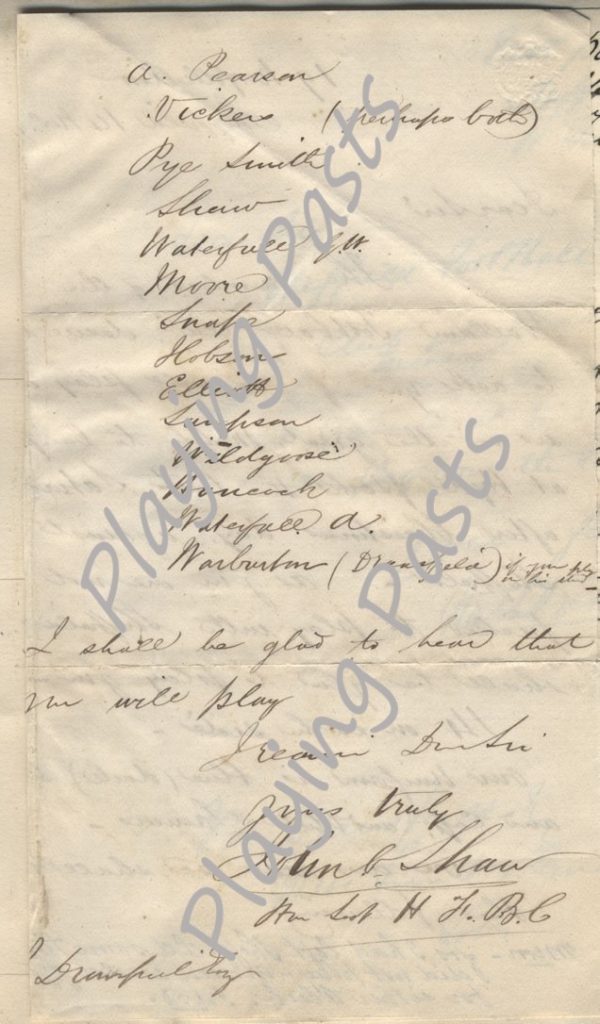 A. Pearson
Vickers (perhaps both)
Pye Smith
Shaw
Waterfall J.W.
Moore
Snape
Hobson
Elliott
Simpson
Wildgoose
Hancock
Waterfall A.
Warburton (Dransfield) if you play
I shall be glad to hear that
you will play
I remain Dear Sir
Yours truly
John C Shaw
Hon Sect H. F. B. C
J Dransfield Esq
Playing Pasts
Playing Pasts